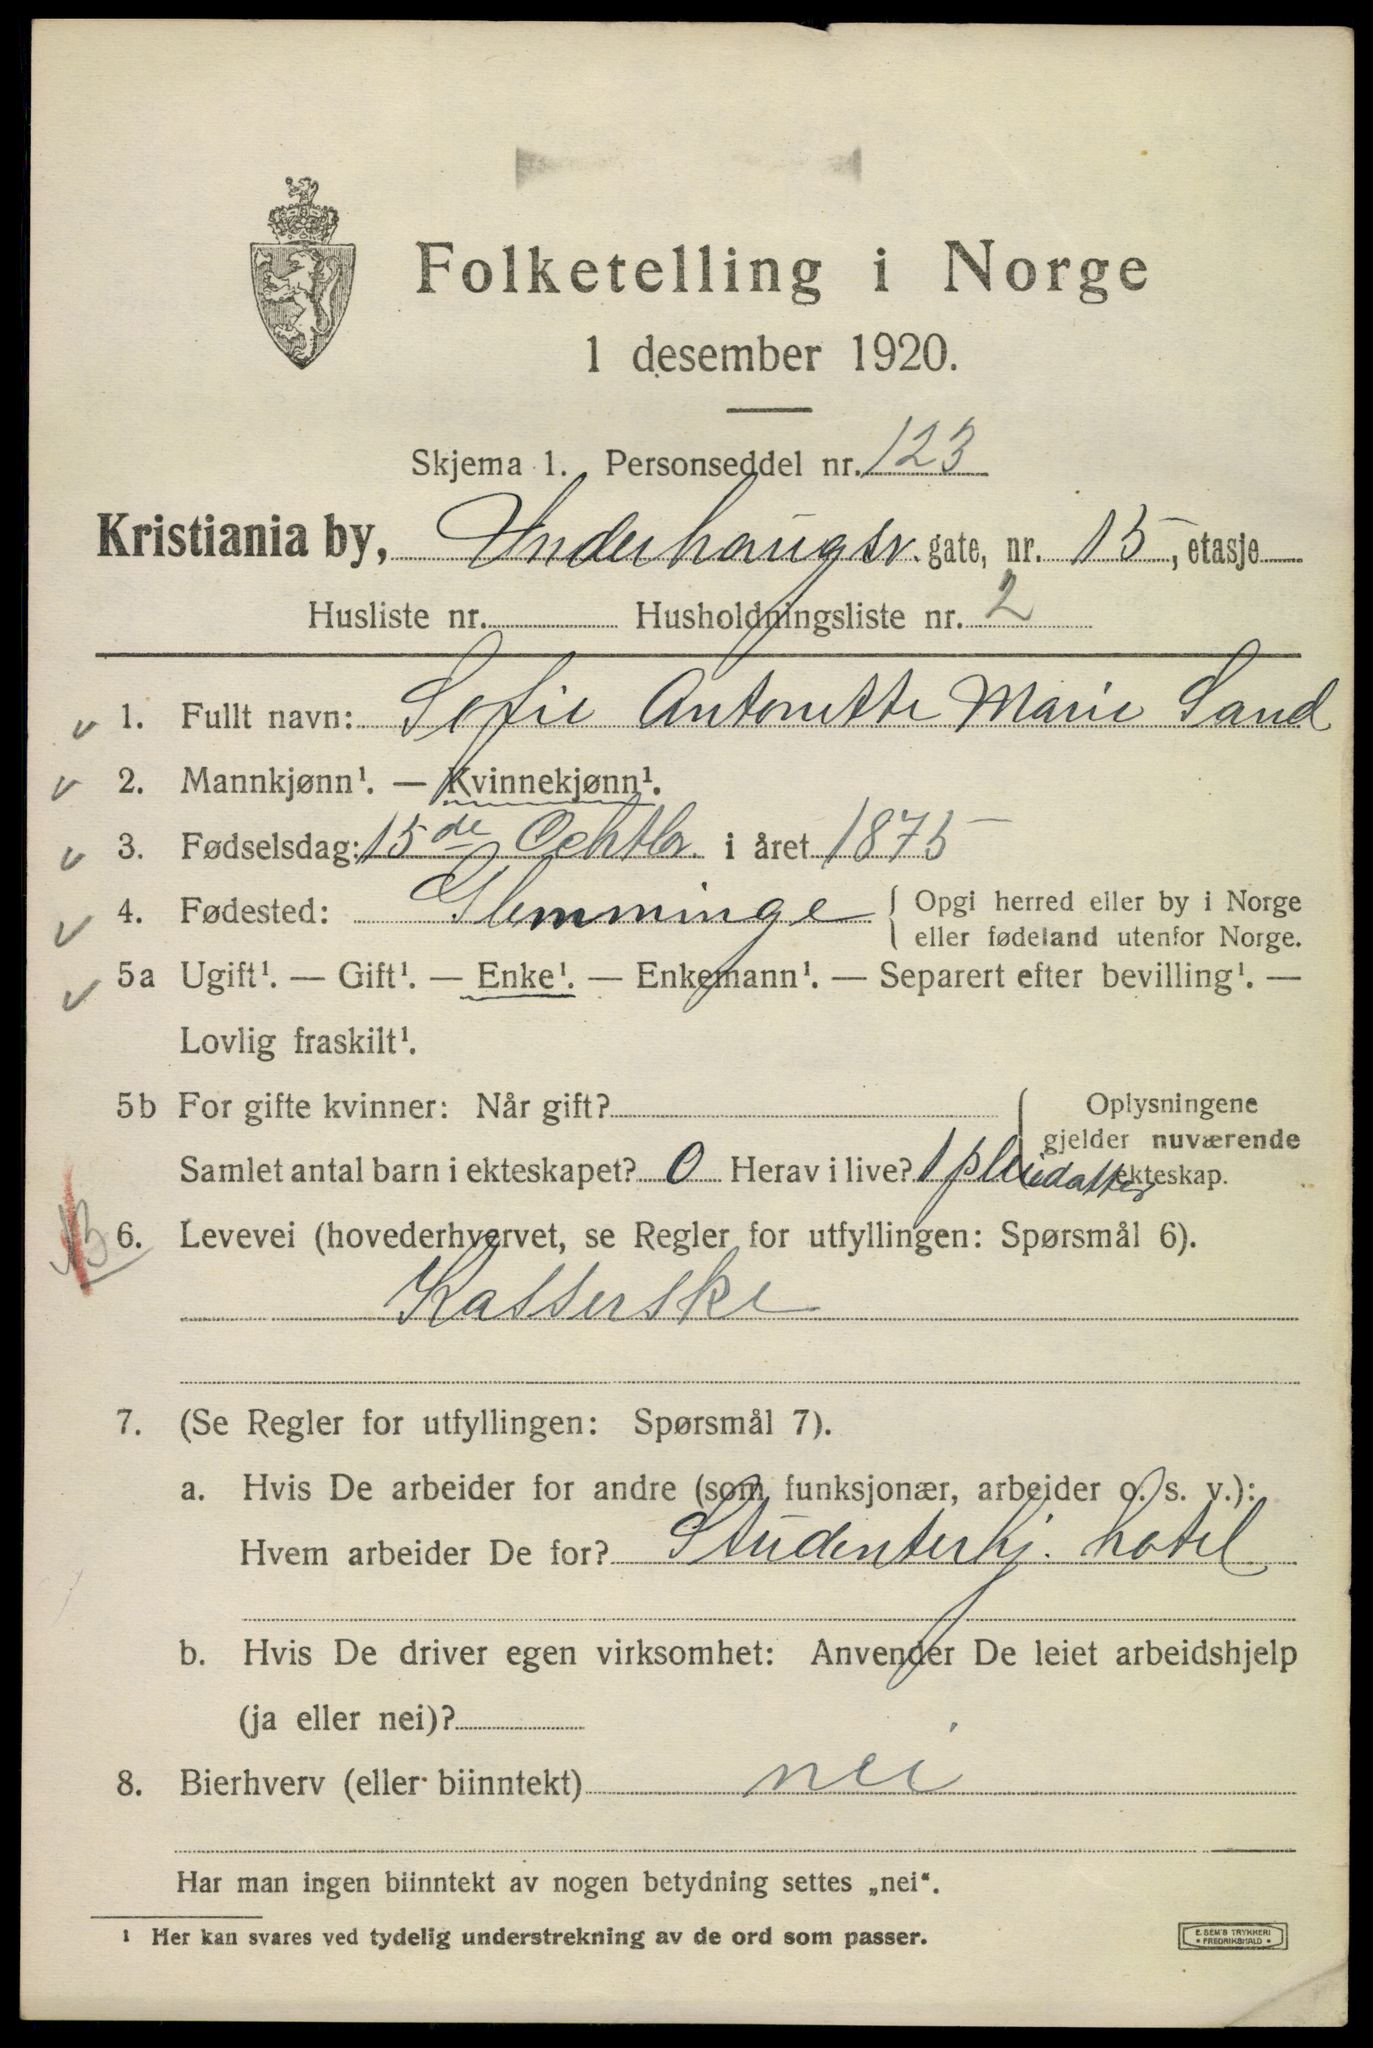 Folketelling i Norge
1 desember 1920.
Skjema 1. Personseddel nr. 123
Kristiania by, Underhaugsv. gate, nr. 15, etasje
Husliste nr. Husholdningsliste nr. 2
1. Fullt navn: Sofie Antonette Marie Sand
2. Mannkjønn¹. — Kvinnekjønn¹.
3. Fødselsdag: 15de Ochtbr. i året 1875
4. Fødested: Glemminge { Opgi herred eller by i Norge
eller fødeland utenfor Norge.
5a Ugift¹. — Gift¹. — Enke¹. — Enkemann¹. — Separert efter bevilling¹. —
Lovlig fraskilt¹.
5b For gifte kvinner: Når gift? { Oplysningene
gjelder nuværende
ekteskap.
Samlet antal barn i ekteskapet? 0 Herav i live? 1 pleiedatter
NB
6. Levevei (hovederhvervet, se Regler for utfyllingen: Spørsmål 6).
Kasserske
7. (Se Regler for utfyllingen: Spørsmål 7).
a. Hvis De arbeider for andre (som funksjonær, arbeider o. s. v.):
Hvem arbeider De for? Studenterhj. hotel
b. Hvis De driver egen virksomhet: Anvender De leiet arbeidshjelp
(ja eller nei)?
8. Bierhverv (eller biinntekt) nei
Har man ingen biinntekt av nogen betydning settes „nei“.
¹ Her kan svares ved tydelig understrekning av de ord som passer.
E. SEM'S TRYKKERI
* FREDRIKSHALD *